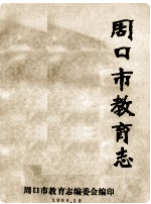 周口市教育志
周口市教育志编委会编印